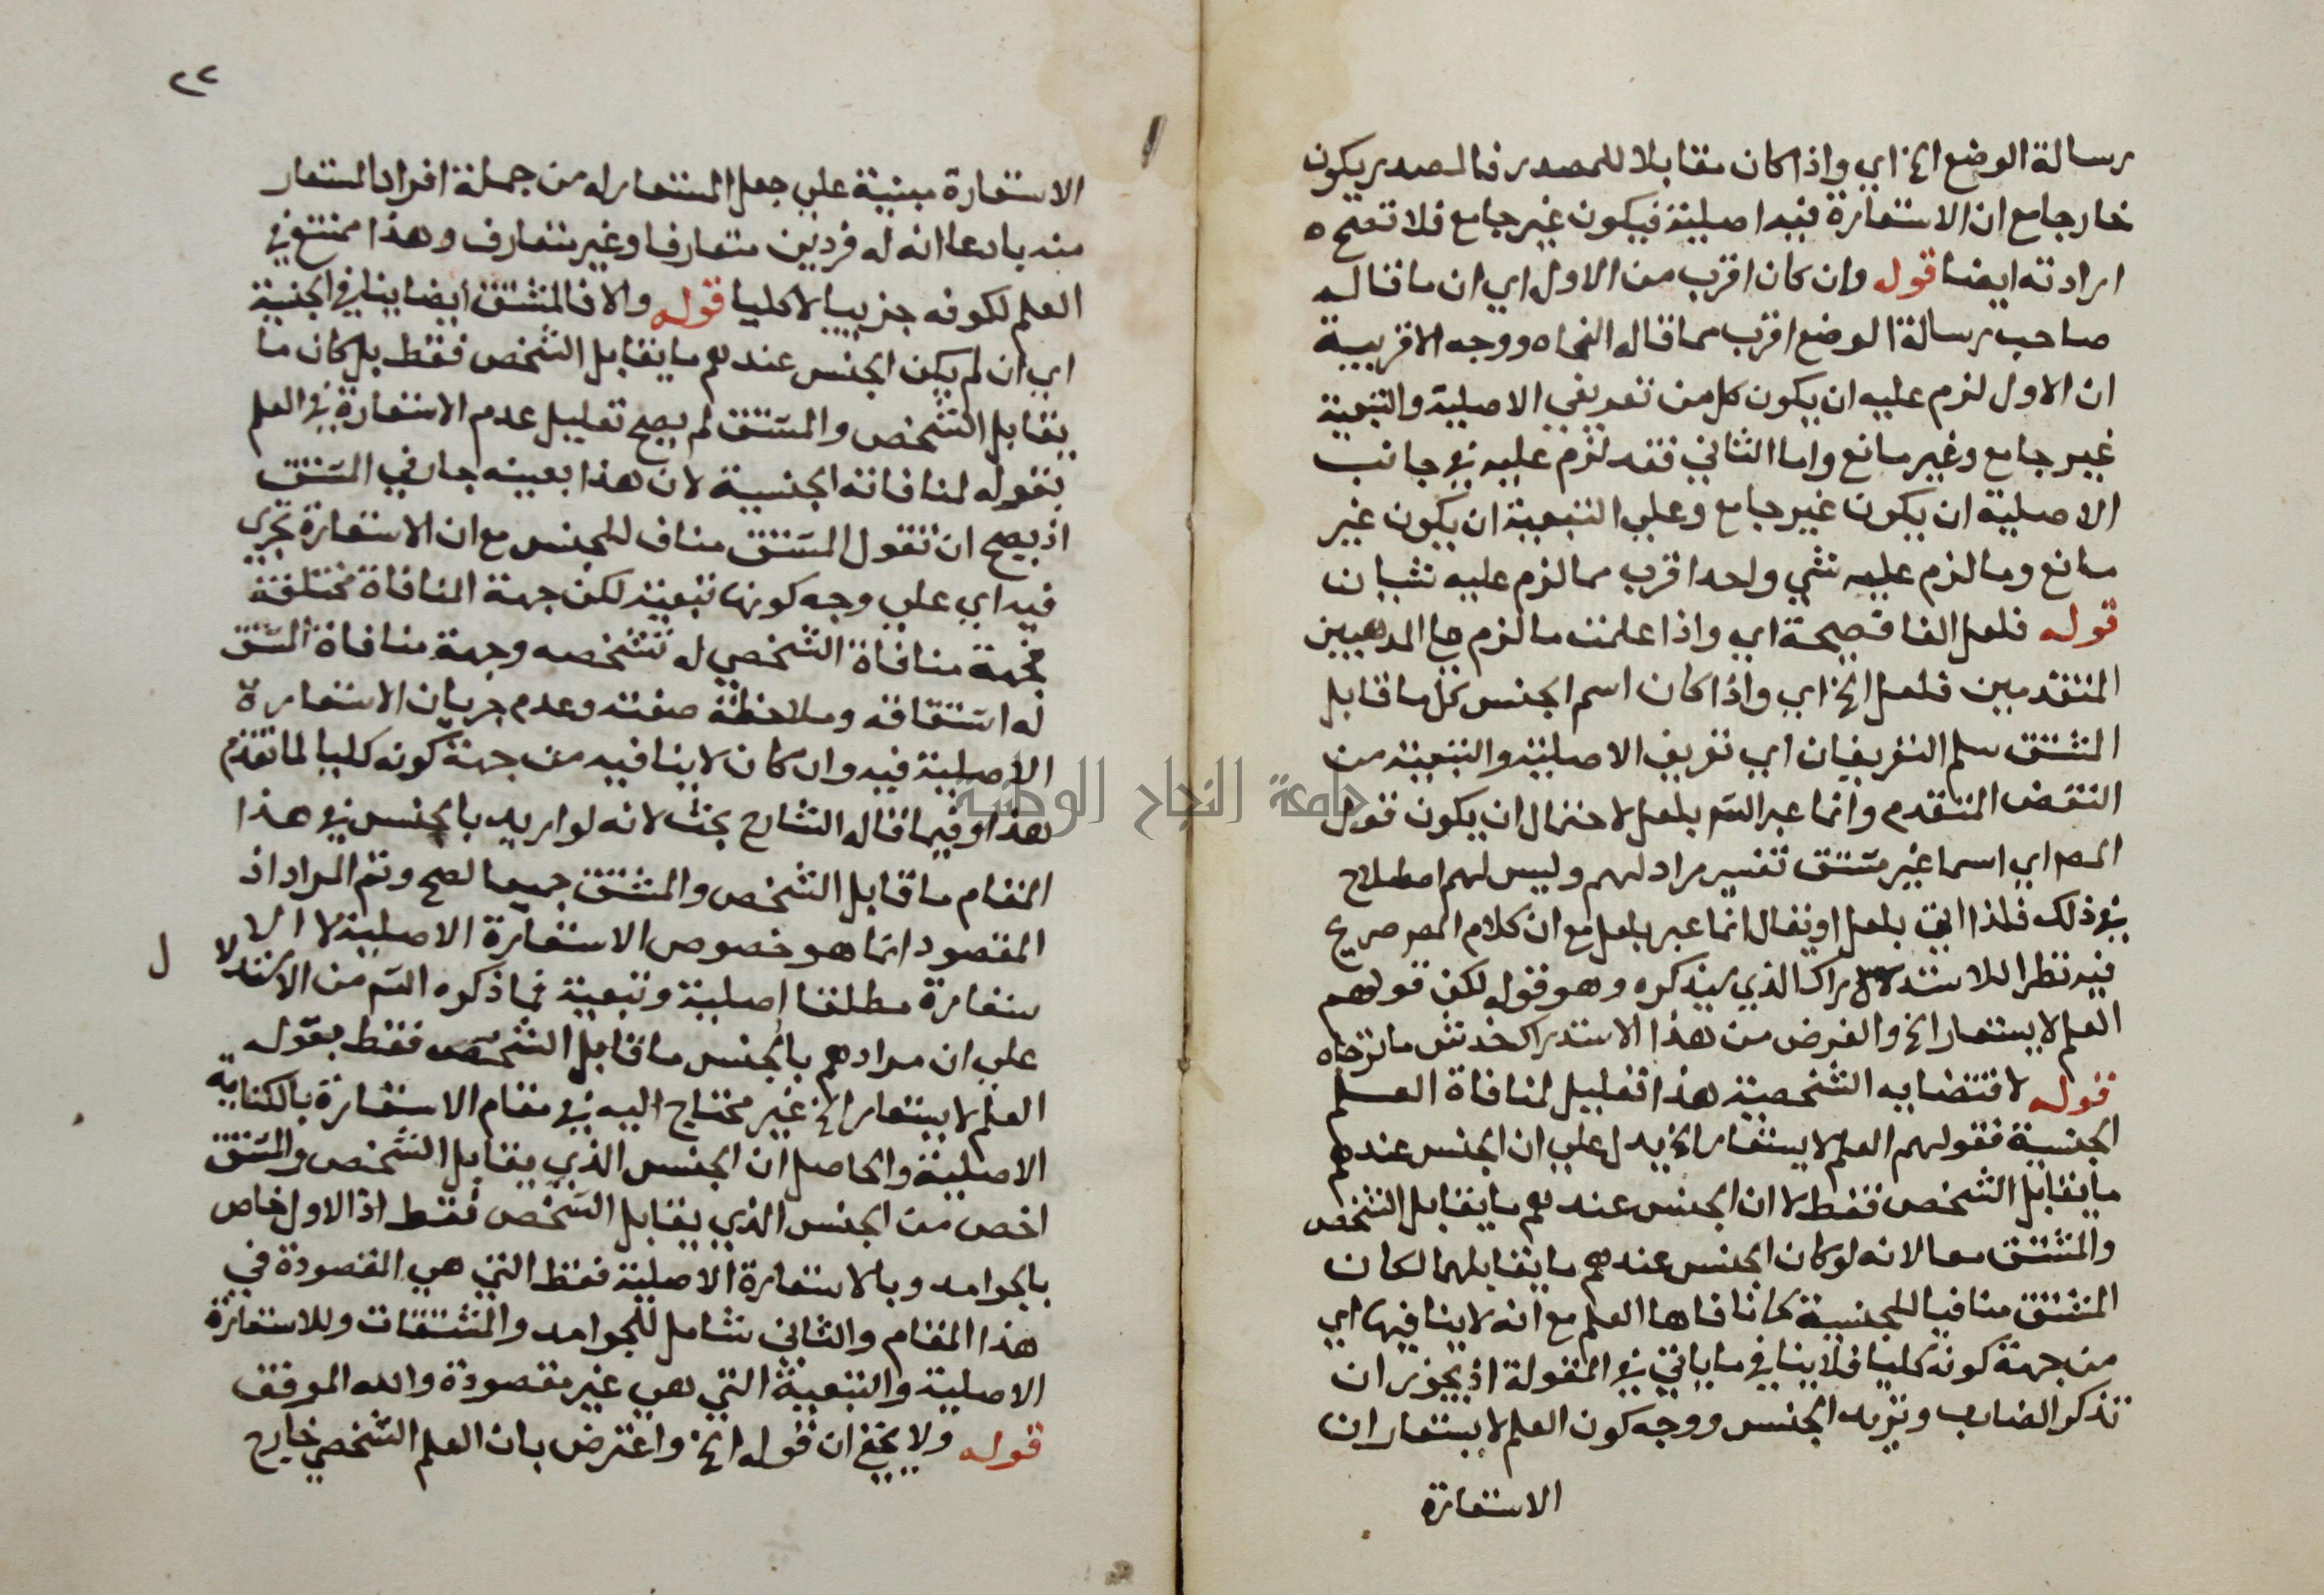 رسالة الوضع الخ اي واذا كان مقابلا للمصدر فالمصدر يكون
خارجا مع ان الاستعارة فيه اصلية فيكون غير جامع فلا تصح
ارادته ايضا قوله وان كان اقرب من الاول اي ان ما قاله
صاحب رسالة الوضع اقرب مما قاله النحاه ووجه الاقربية
ان الاول لزم عليه ان يكون كل من تعريفي الاصلية والتبعية
غير جامع وغير مانع واما الثاني فقد لزم عليه في جانب
الاصلية ان يكون غير جامع وعلي التبعية ان يكون غير
مانع وما لزم عليه شي واحد اقرب مما لزم عليه شيان
قوله فلعل الفا فصيحة اي واذا علمت ما لزم علي المذهبين
المتقدمين فلعل الخ اي واذا كان اسم الجنس كل ما قابل
المشتق سلم التعريفان اي تعريف الاصلية والتبعية من
النقض المتقدم وانما عبر الشم بلعل لاحتمال ان يكون قول
المص اي اسما غير مشتق تفسير مراد لهم وليس لهم اصطلاح
في ذلك فلذا اتي بلعل او يقال انما عبر بلعل مع ان كلام المص صريح
فيه نظرا للاستدراك الذي يذكره وهو قوله لكن قولهم
العلم لا يستعار الخ والغرض من هذا الاستدراك خدش ما ترجاه
قوله لاقتضايه الشخصية هذا تعليل لمنافاة العلم
الجنسية فقولهم العلم لا يستعار الخ يدل علي ان الجنس عندهم
ما يقابل الشخص فقط لا ان الجنس عندهم ما يقابل الشخص
والمشتق معا لانه لو كان الجنس عندهم ما يقابلهما لكان
المشتق منافيا للجنسية كما نافاها العلم مع انه لا ينافيها اي
من جهة كونه كليا فلا ينافي ما ياتي في المقولة اذ يجوز ان
تذكر الضارب وتريد الجنس ووجه كون العلم لا يستعار ان
الاستعارة
٢٢
الاستعارة مبنية علي جعل المستعار له من جملة افراد المستعار
منه بادعا انه له فردين متعارفا وغير متعارف وهذا ممتنع في
العلم لكونه جزييا لا كليا قوله والا فالمشتق ايضا ينافي الجنسية
اي ان لم يكن الجنس عندهم ما يقابل الشخص فقط بل كان ما
يقابل الشخص والمشتق لم يصح تعليل عدم الاستعارة في العلم
بقوله لمنافاته الجنسية لان هذا بعينه جار في المشتق
اذ يصح ان تقول المشتق مناف للجنس مع ان الاستعارة تجري
فيه اي علي وجه كونها تبعية لكن جهة المنافاة مختلفة
فجهة منافاة الشخصي له تشخصه وجهة منافاة المشتق
له اشتقاقه وملاحظة صفته وعدم جريان الاستعارة
الاصلية فيه وان كان لا ينافيه من جهة كونه كليا لما تقدم
هذا وفيما قاله الشارح بحث لانه لو اريد بالجنس في هذا
المقام ما قابل الشخص والمشتق جميعا لصح وتم المراد اذ
المقصود انما هو خصوص الاستعارة الاصلية لا الا
ستعارة مطلقا اصلية وتبعية فما ذكره الشم من الاستدلا
ل
علي ان مرادهم بالجنس ما قابل الشخص فقط بقوله
العلم لا يستعار الخ غير محتاج اليه في مقام الاستعارة بالكناية
الاصلية والحاصل ان الجنس الذي يقابل الشخص والمشتق
اخص من الجنس الذي يقابل الشخص فقط اذ الاول خاص
بالجوامد وبالاستعارة الاصلية فقط التي هي المقصودة في
هذا المقام والثاني شامل للجوامد والمشتقات وللاستعارة
الاصلية والتبعية التي هي غير مقصودة والله الموفق
قوله ولا يخفي ان قوله الخ واعترض بان العلم الشخصي خارج
جامعة النجاح الوطنية